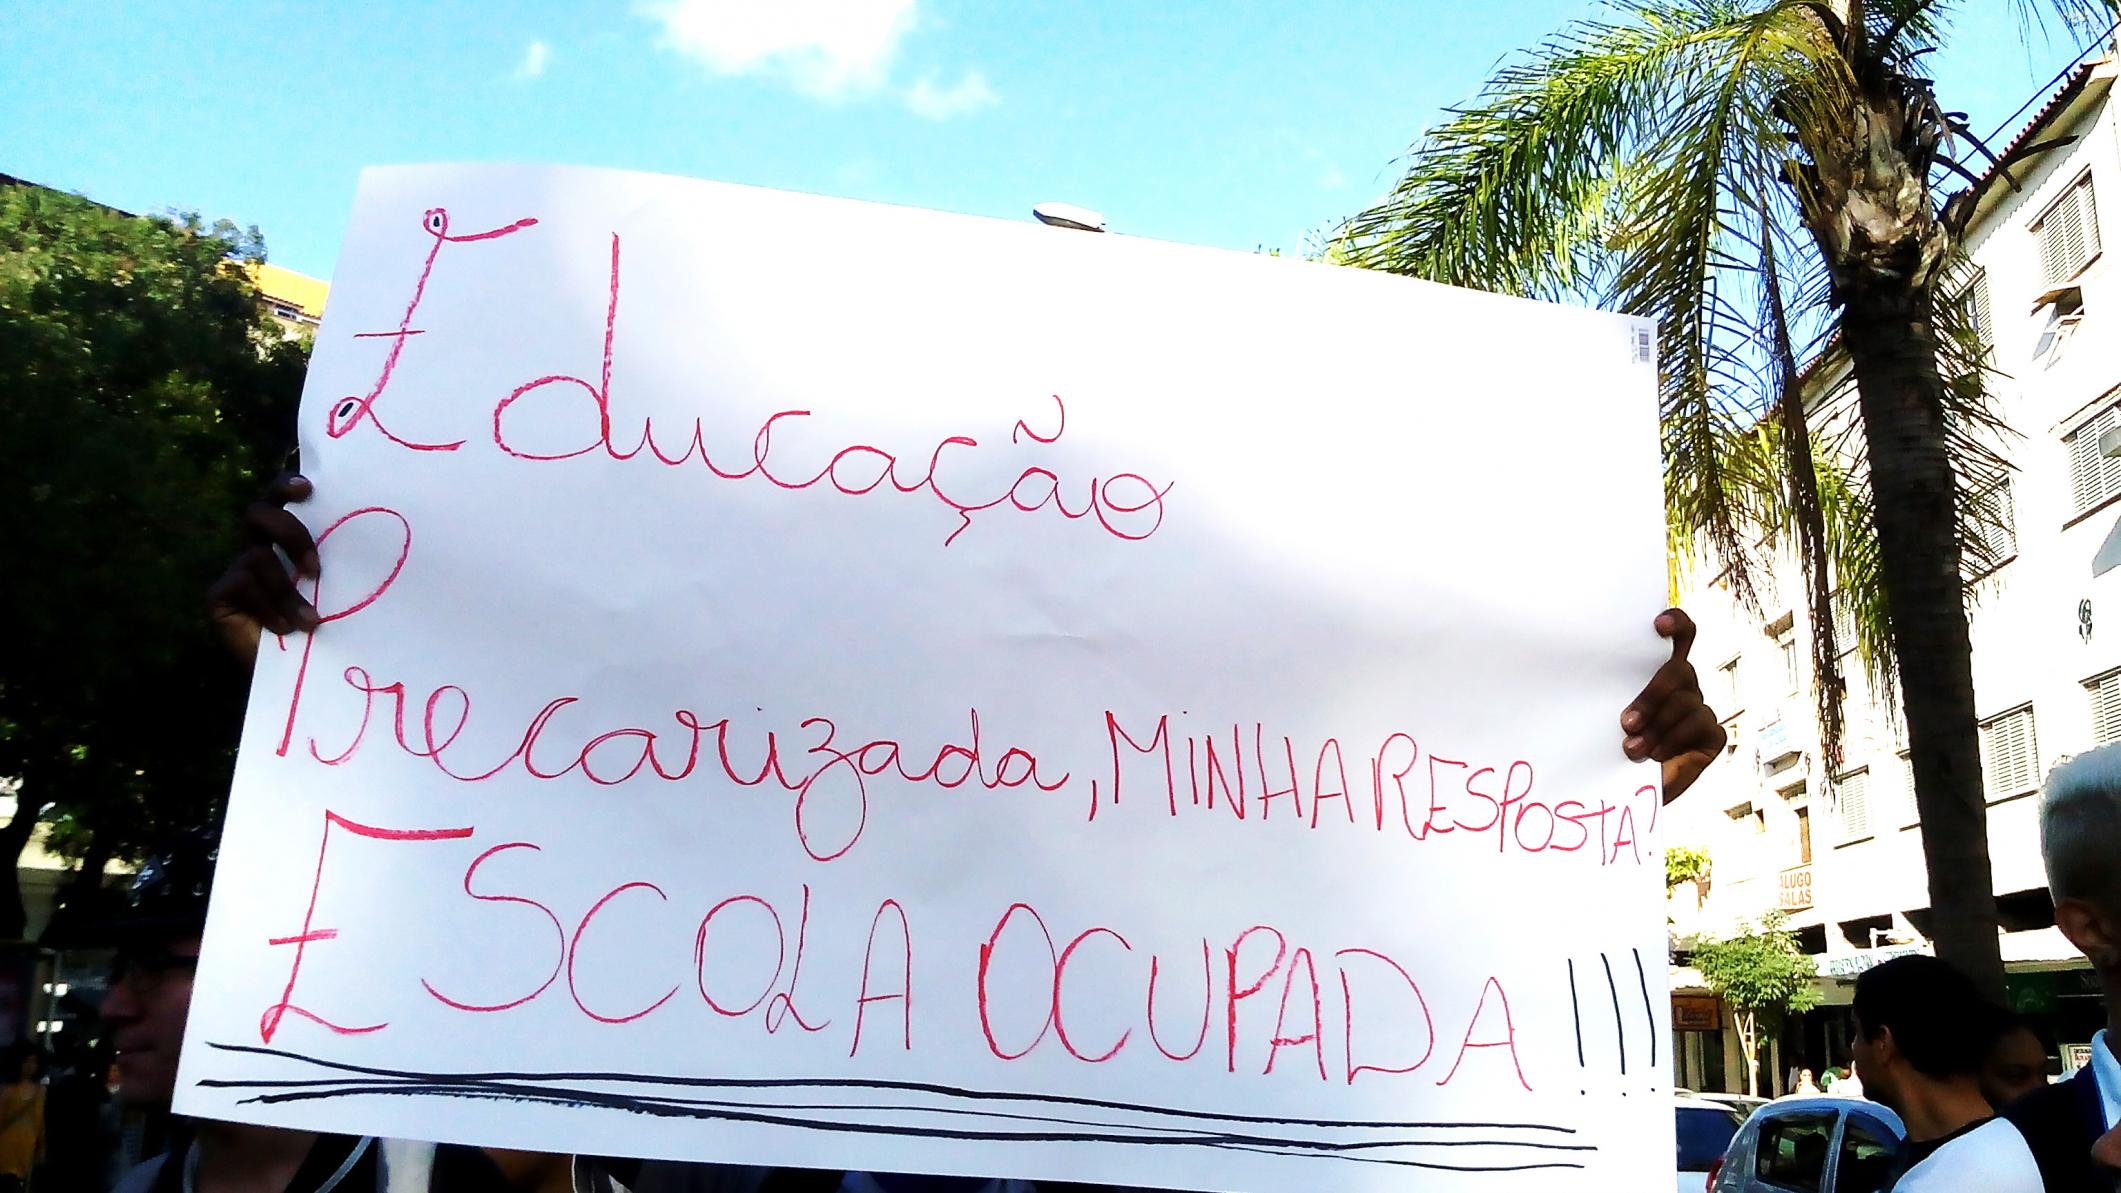 Educação
Precarizada, MiNHA RESPOSTA?
ESCOLA OCUPADA!!!
ALUGO
SALAS